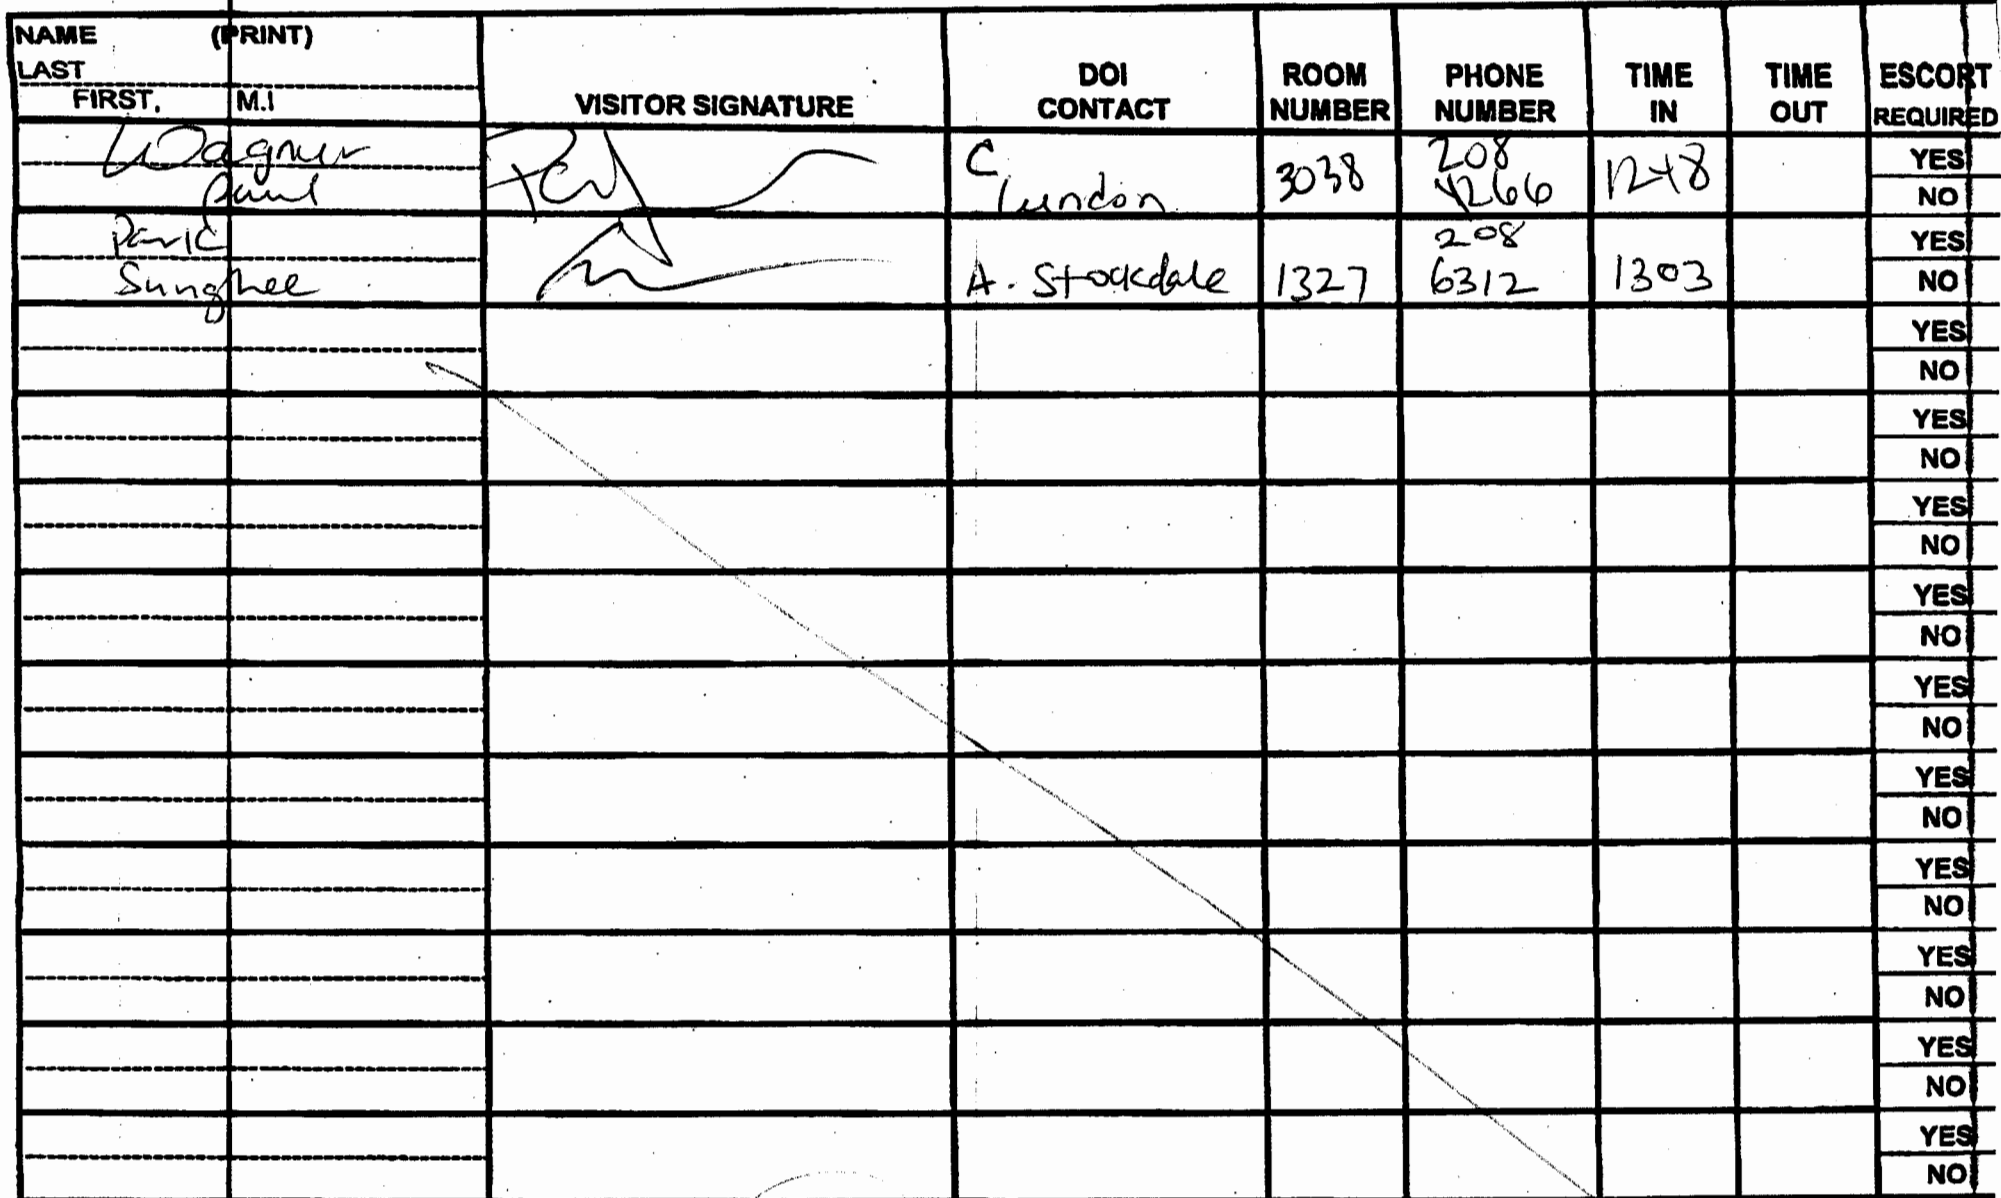 NAME (PRINT)
LAST
FIRST, M.I
VISITOR SIGNATURE
DOI CONTACT
ROOM NUMBER
PHONE NUMBER
TIME IN
TIME OUT
ESCORT REQUIRED
Wagner
Paul
C
3038
208
4266
1248
YES
NO
Park
Sunghee
A. Stockdale
1327
208
6312
1303
YES
NO
YES
NO
YES
NO
YES
NO
YES
NO
YES
NO
YES
NO
YES
NO
YES
NO
YES
NO
YES
NO